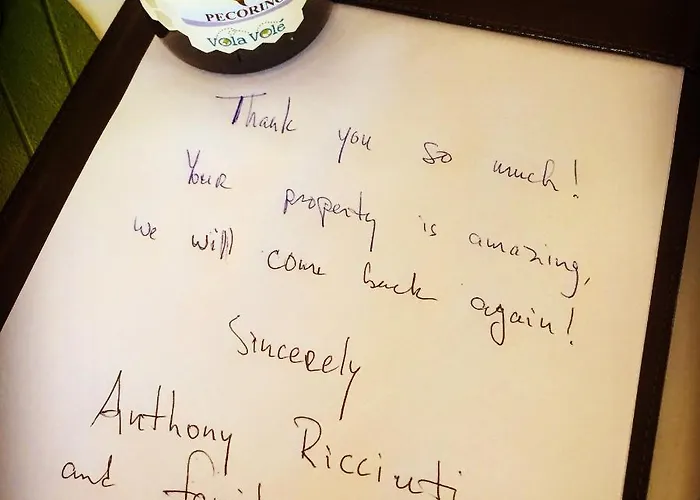 PECORINO
Vola Volé
Thank you so much!
Your property is amazing,
we will come back again!
Sincerely
Anthony Ricciuti
and